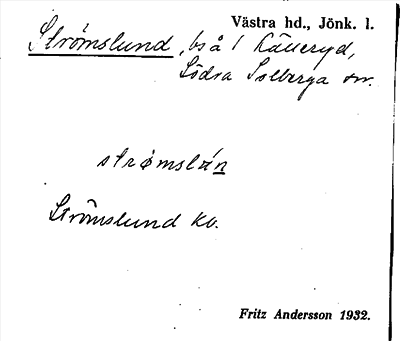 Västra hd., Jönk. l.
Strömslund, bs å 1 Källeryd,
Södra Solberga sn.
strømslún
Strömslund kv.
Fritz Andersson 1932.